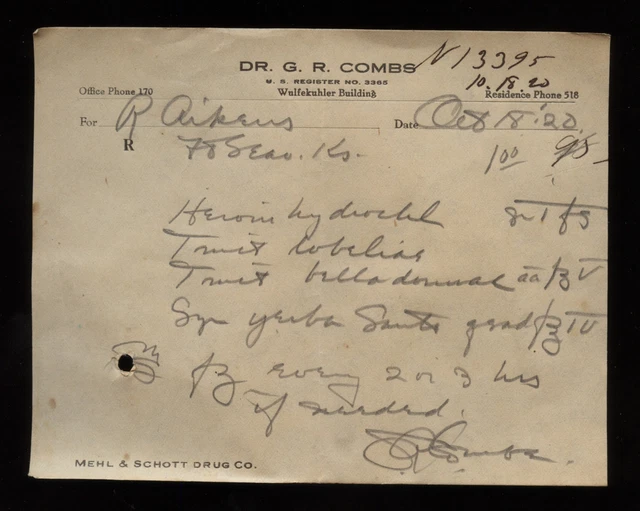 DR. G. R. COMBS N 13395
U. S. REGISTER NO. 3365 10.18.20
Office Phone 170 Wulfekuhler Building Residence Phone 518
For R Aikens Date Oct 18 '20
R Ft Leav. Ks. 1 00
Heroin hydrochl gr
Tinct lobeliae
Tinct belladonnae aa V
Syr yerba Santa qsad IV
every 2 or 3 hrs
if needed.
GRCombs.
MEHL & SCHOTT DRUG CO.